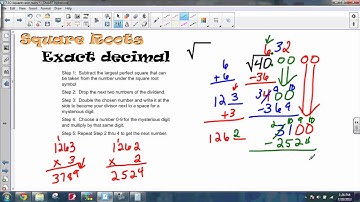 Square Roots
Exact decimal
Step 1: Subtract the largest perfect square that can be taken from the number under the square root symbol
Step 2: Drop the next two numbers of the dividend.
Step 3: Double the chosen number and write it at the side to become your divisor next to a space for a mysterious digit
Step 4: Choose a number 0-9 for the mysterious digit and multiply by that same digit.
Step 5: Repeat Step 2 thru 4 to get the next number.
1263
x 3
3789
1262
x 2
2524
6
+6
123
+3
1262
6.32
√40.0000
-36
400
-369
3100
-2524